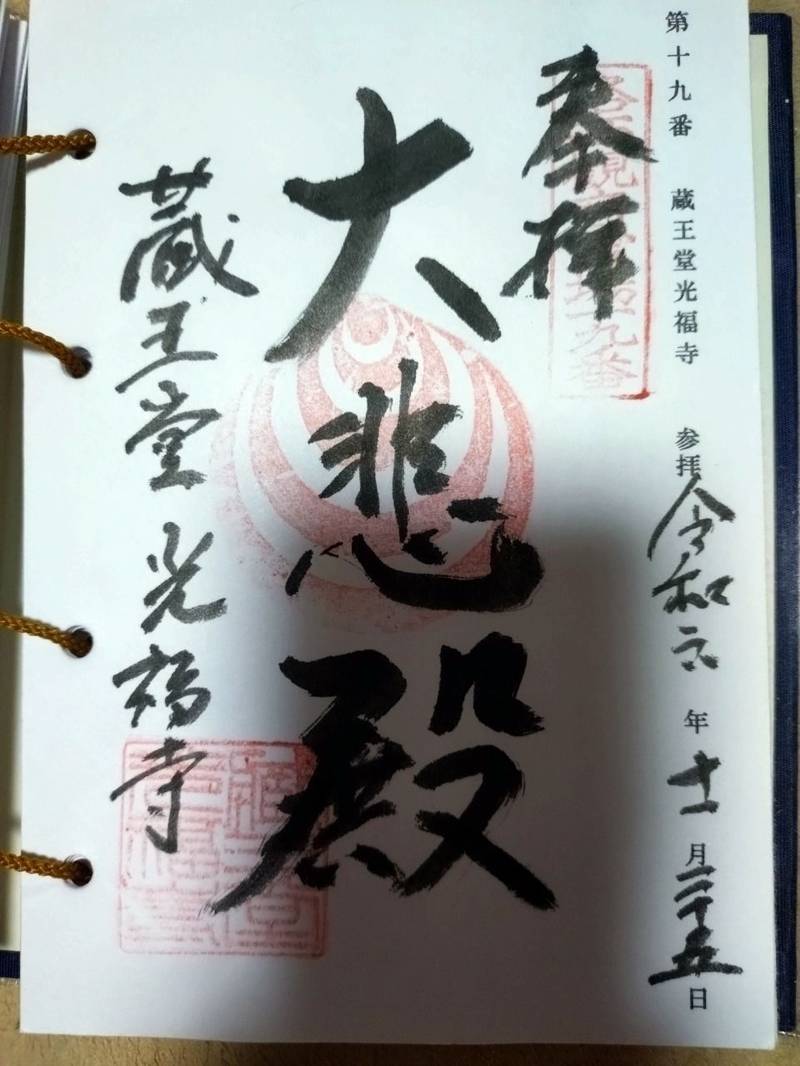 第十九番 蔵王堂光福寺 参拝 令和六年十一月二十五日
奉拝
大悲殿
蔵王堂 光福寺